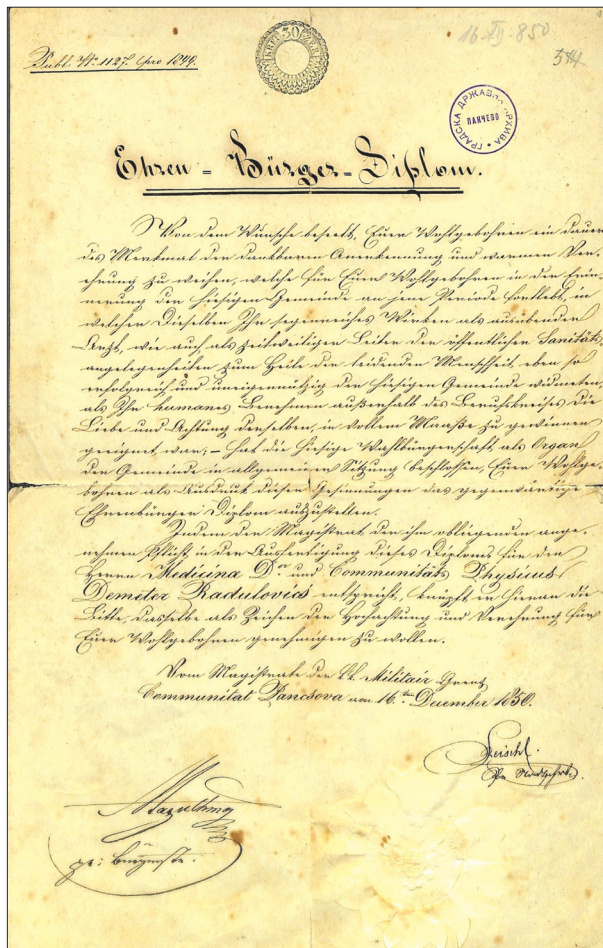 16-XII-850
Publ. No. 1127. pro 1849.
30
ГРАДСКА ДРЖАВНА АРХИВА
ПАНЧЕВО
Ehren = Bürger = Diplom.
Von dem Wunsche beseelt, Euer Wohlgebohren ein dauern
des Merkmal der dankbaren Anerkennung und warmen Ver,
ehrung zu weihen, welche für Euer Wohlgebohren in der Erin,
nerung der hiesigen Gemeinde an jene Periode fortlebt, in
welcher Dieselben Ihr segenreiches Wirken als ausübender
Arzt, wie auch als zeitweiliger Leiter der öffentlichen Sanitäts,
angelegenheiten zum Heile der leidenden Menschheit, eben so
erfolgreich und uneigennützig der hiesigen Gemeinde widmeten,
als Ihr humanes Benehmen außerhalb des Berufskreises die
Liebe und Achtung derselben, in vollem Maaße zu gewinnen
geeignet war; – hat die hiesige Wahlbürgerschaft, als Organ
der Gemeinde in allgemeiner Sitzung beschlossen, Euer Wohlge,
bohren als Ausdruck dieser Gesinnungen das gegenwärtige
Ehrenbürger Diplom auszustellen.
Indem der Magistrat der ihm obliegenden ange,
nehmen Pflicht in der Ausfertigung dieses Diploms für den
Herrn Medicinä Dor. und Communitäts Physicus
Demeter Radulovics entspricht, knüpft er hieran die
Bitte, dasselbe als Zeichen der Hochachtung und Verehrung für
Euer Wohlgebohren genehmigen zu wollen.
Vom Magistrate der k.k. Militair Grenz
Communitat Pancsova am 16ten December 1850.